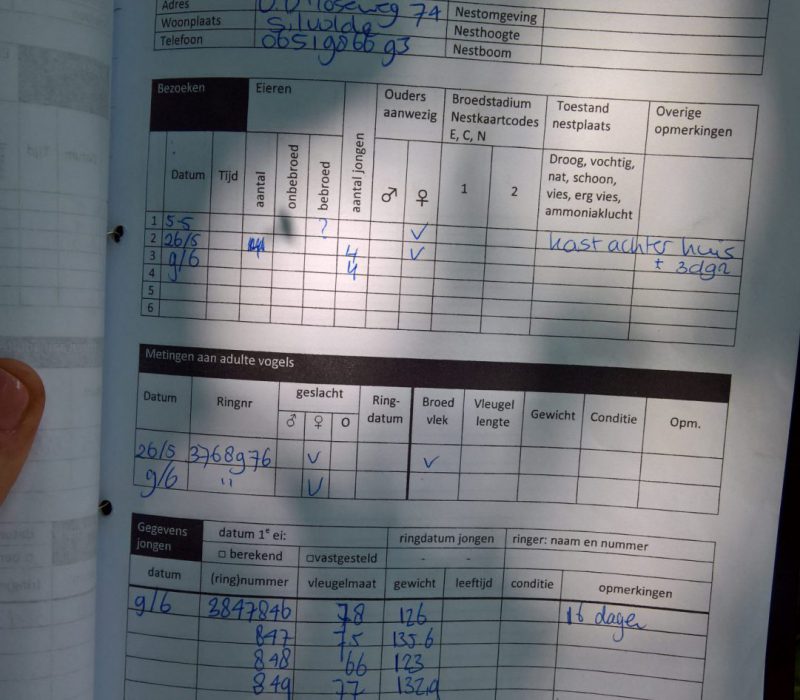 Adres 74
Woonplaats Silvolde Nestomgeving
Telefoon 0651986693 Nesthoogte
Nestboom
Bezoeken Eieren aantal jongen Ouders aanwezig Broedstadium Nestkaartcodes E, C, N Toestand nestplaats Overige opmerkingen
Datum Tijd aantal onbebroed bebroed ♂ ♀ 1 2 Droog, vochtig, nat, schoon, vies, erg vies, ammoniaklucht
1 5-5 ? ✓
2 26/5 4 ✓ kast achter huis
3 9/6 4 ± 3dgn
4
5
6
Metingen aan adulte vogels
Datum Ringnr geslacht Ring-datum Broed vlek Vleugel lengte Gewicht Conditie Opm.
♂ ♀ O
26/5 3768976 ✓ ✓
9/6 " ✓
Gegevens jongen datum 1e ei: ringdatum jongen ringer: naam en nummer
□ berekend □vastgesteld - -
datum (ring)nummer vleugelmaat gewicht leeftijd conditie opmerkingen
9/6 3847846 78 126 16 dagen
847 75 135.6
848 66 123
849 77 132,9